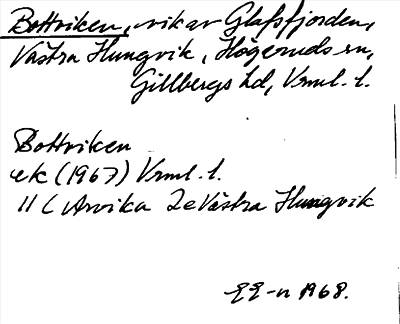 Bottviken, vik av Glafsfjorden,
Västra Hungvik, Högeruds sn,
Gillbergs hd, Vrml. l.
Bottviken
ek (1967) Vrml. l.
11 C Arvika 2e Västra Hungvik
EE-n 1968.